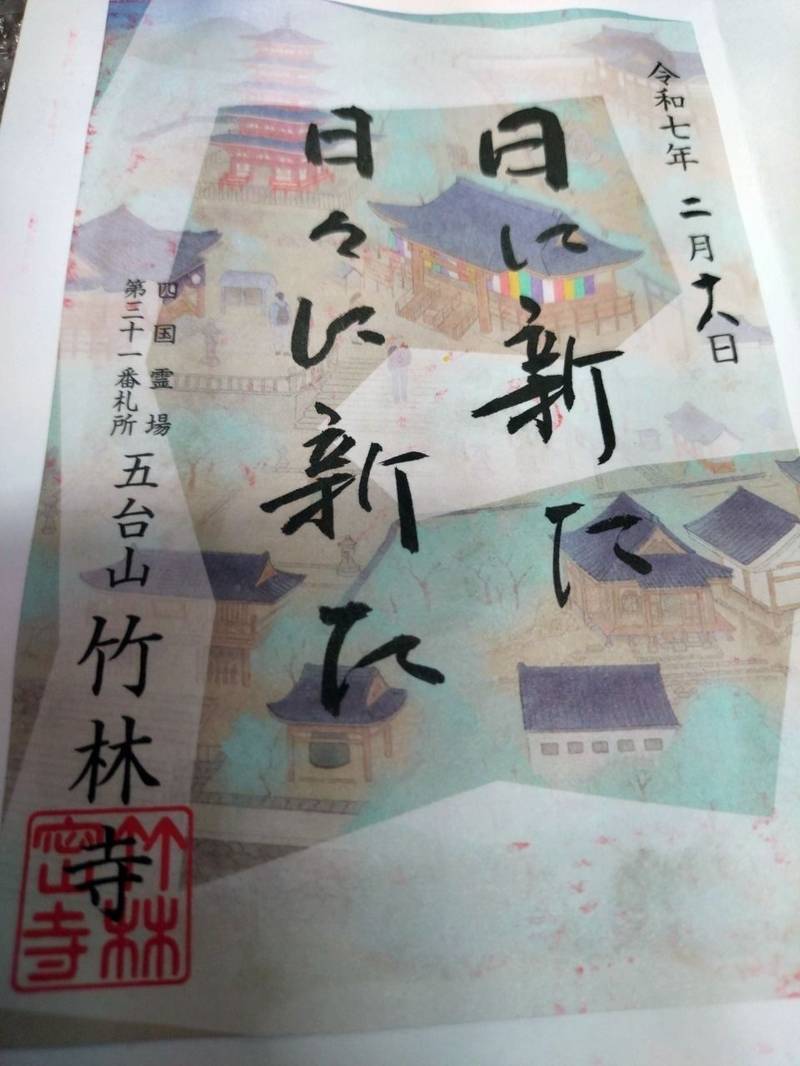 令和七年 二月十八日
日に新た
日々に新た
四国霊場
第三十一番札所
五台山 竹林寺
竹林
密寺